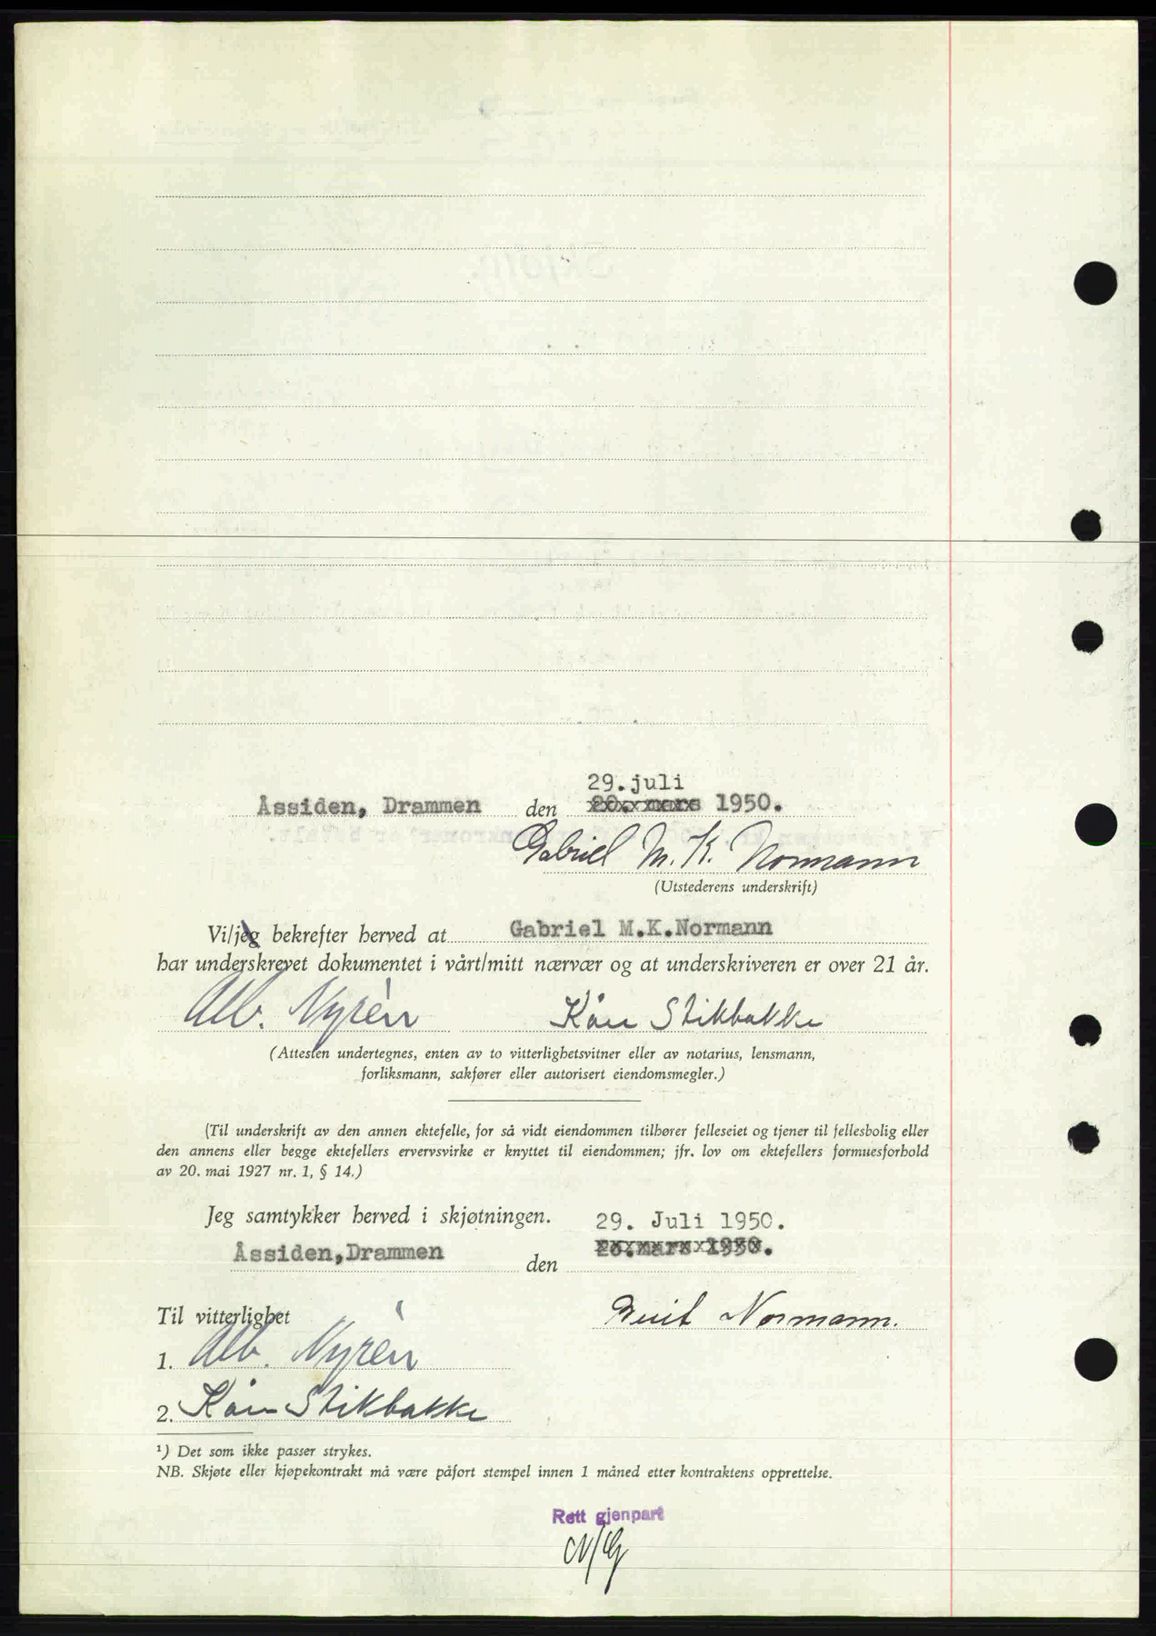 29.juli
Åssiden, Drammen den 20. mars 1950.
Gabriel M. K. Normann
(Utstederens underskrift)
Vi/jeg bekrefter herved at Gabriel M.K.Normann
har underskrevet dokumentet i vårt/mitt nærvær og at underskriveren er over 21 år.
Alb. Nyrèn Kåre Stikbakke
(Attesten undertegnes, enten av to vitterlighetsvitner eller av notarius, lensmann,
forliksmann, sakfører eller autorisert eiendomsmegler.)
(Til underskrift av den annen ektefelle, for så vidt eiendommen tilhører felleseiet og tjener til fellesbolig eller
den annens eller begge ektefellers ervervsvirke er knyttet til eiendommen; jfr. lov om ektefellers formuesforhold
av 20. mai 1927 nr. 1, § 14.)
Jeg samtykker herved i skjøtningen. 29. Juli 1950.
Åssiden,Drammen den
Til vitterlighet Normann.
1. Alb. Nyrèn
2. Kåre Stikbakke
¹) Det som ikke passer strykes.
NB. Skjøte eller kjøpekontrakt må være påført stempel innen 1 måned etter kontraktens opprettelse.
Rett gjenpart